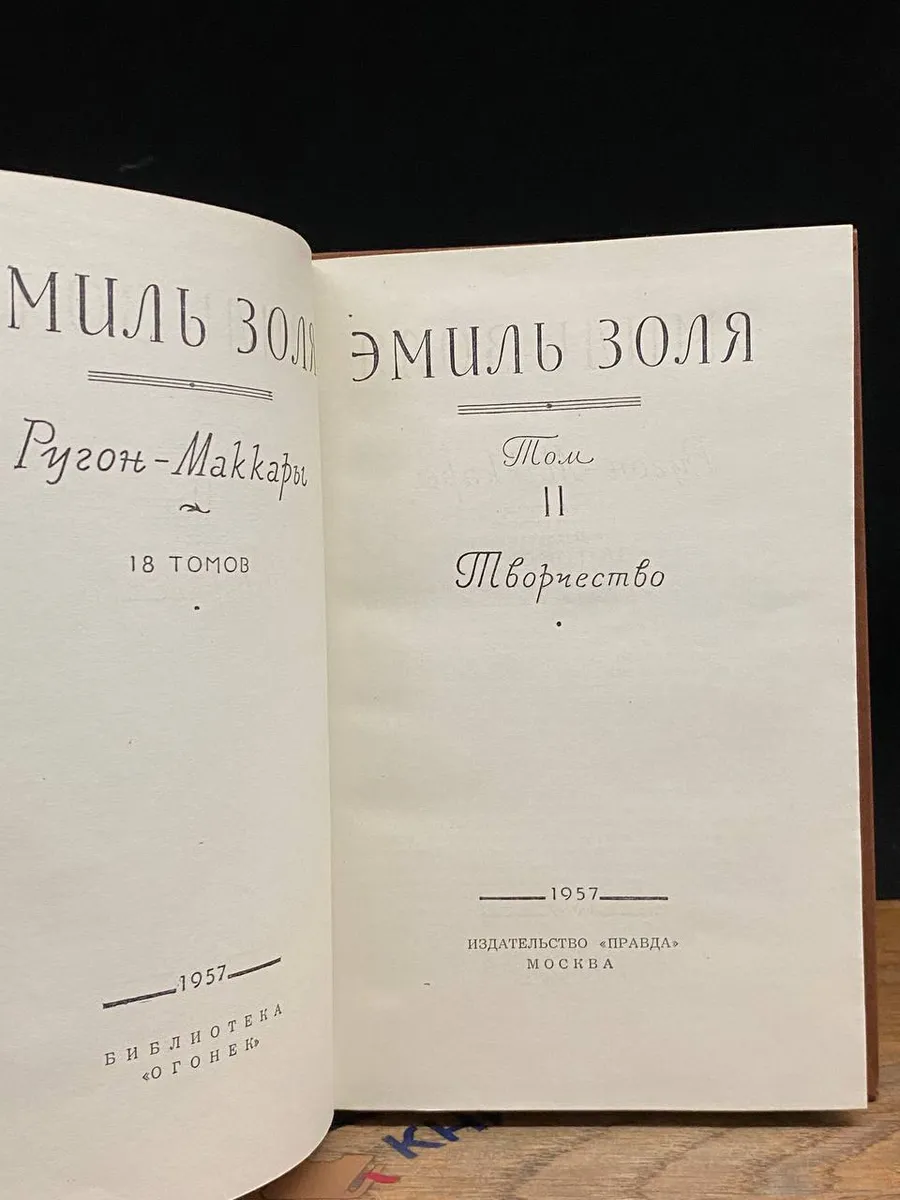 МИЛЬ ЗОЛЯ
Ругон-Маккары
18 ТОМОВ
1957
БИБЛИОТЕКА
«ОГОНЕК»
ЭМИЛЬ ЗОЛЯ
Том
11
Творчество
1957
ИЗДАТЕЛЬСТВО «ПРАВДА»
МОСКВА